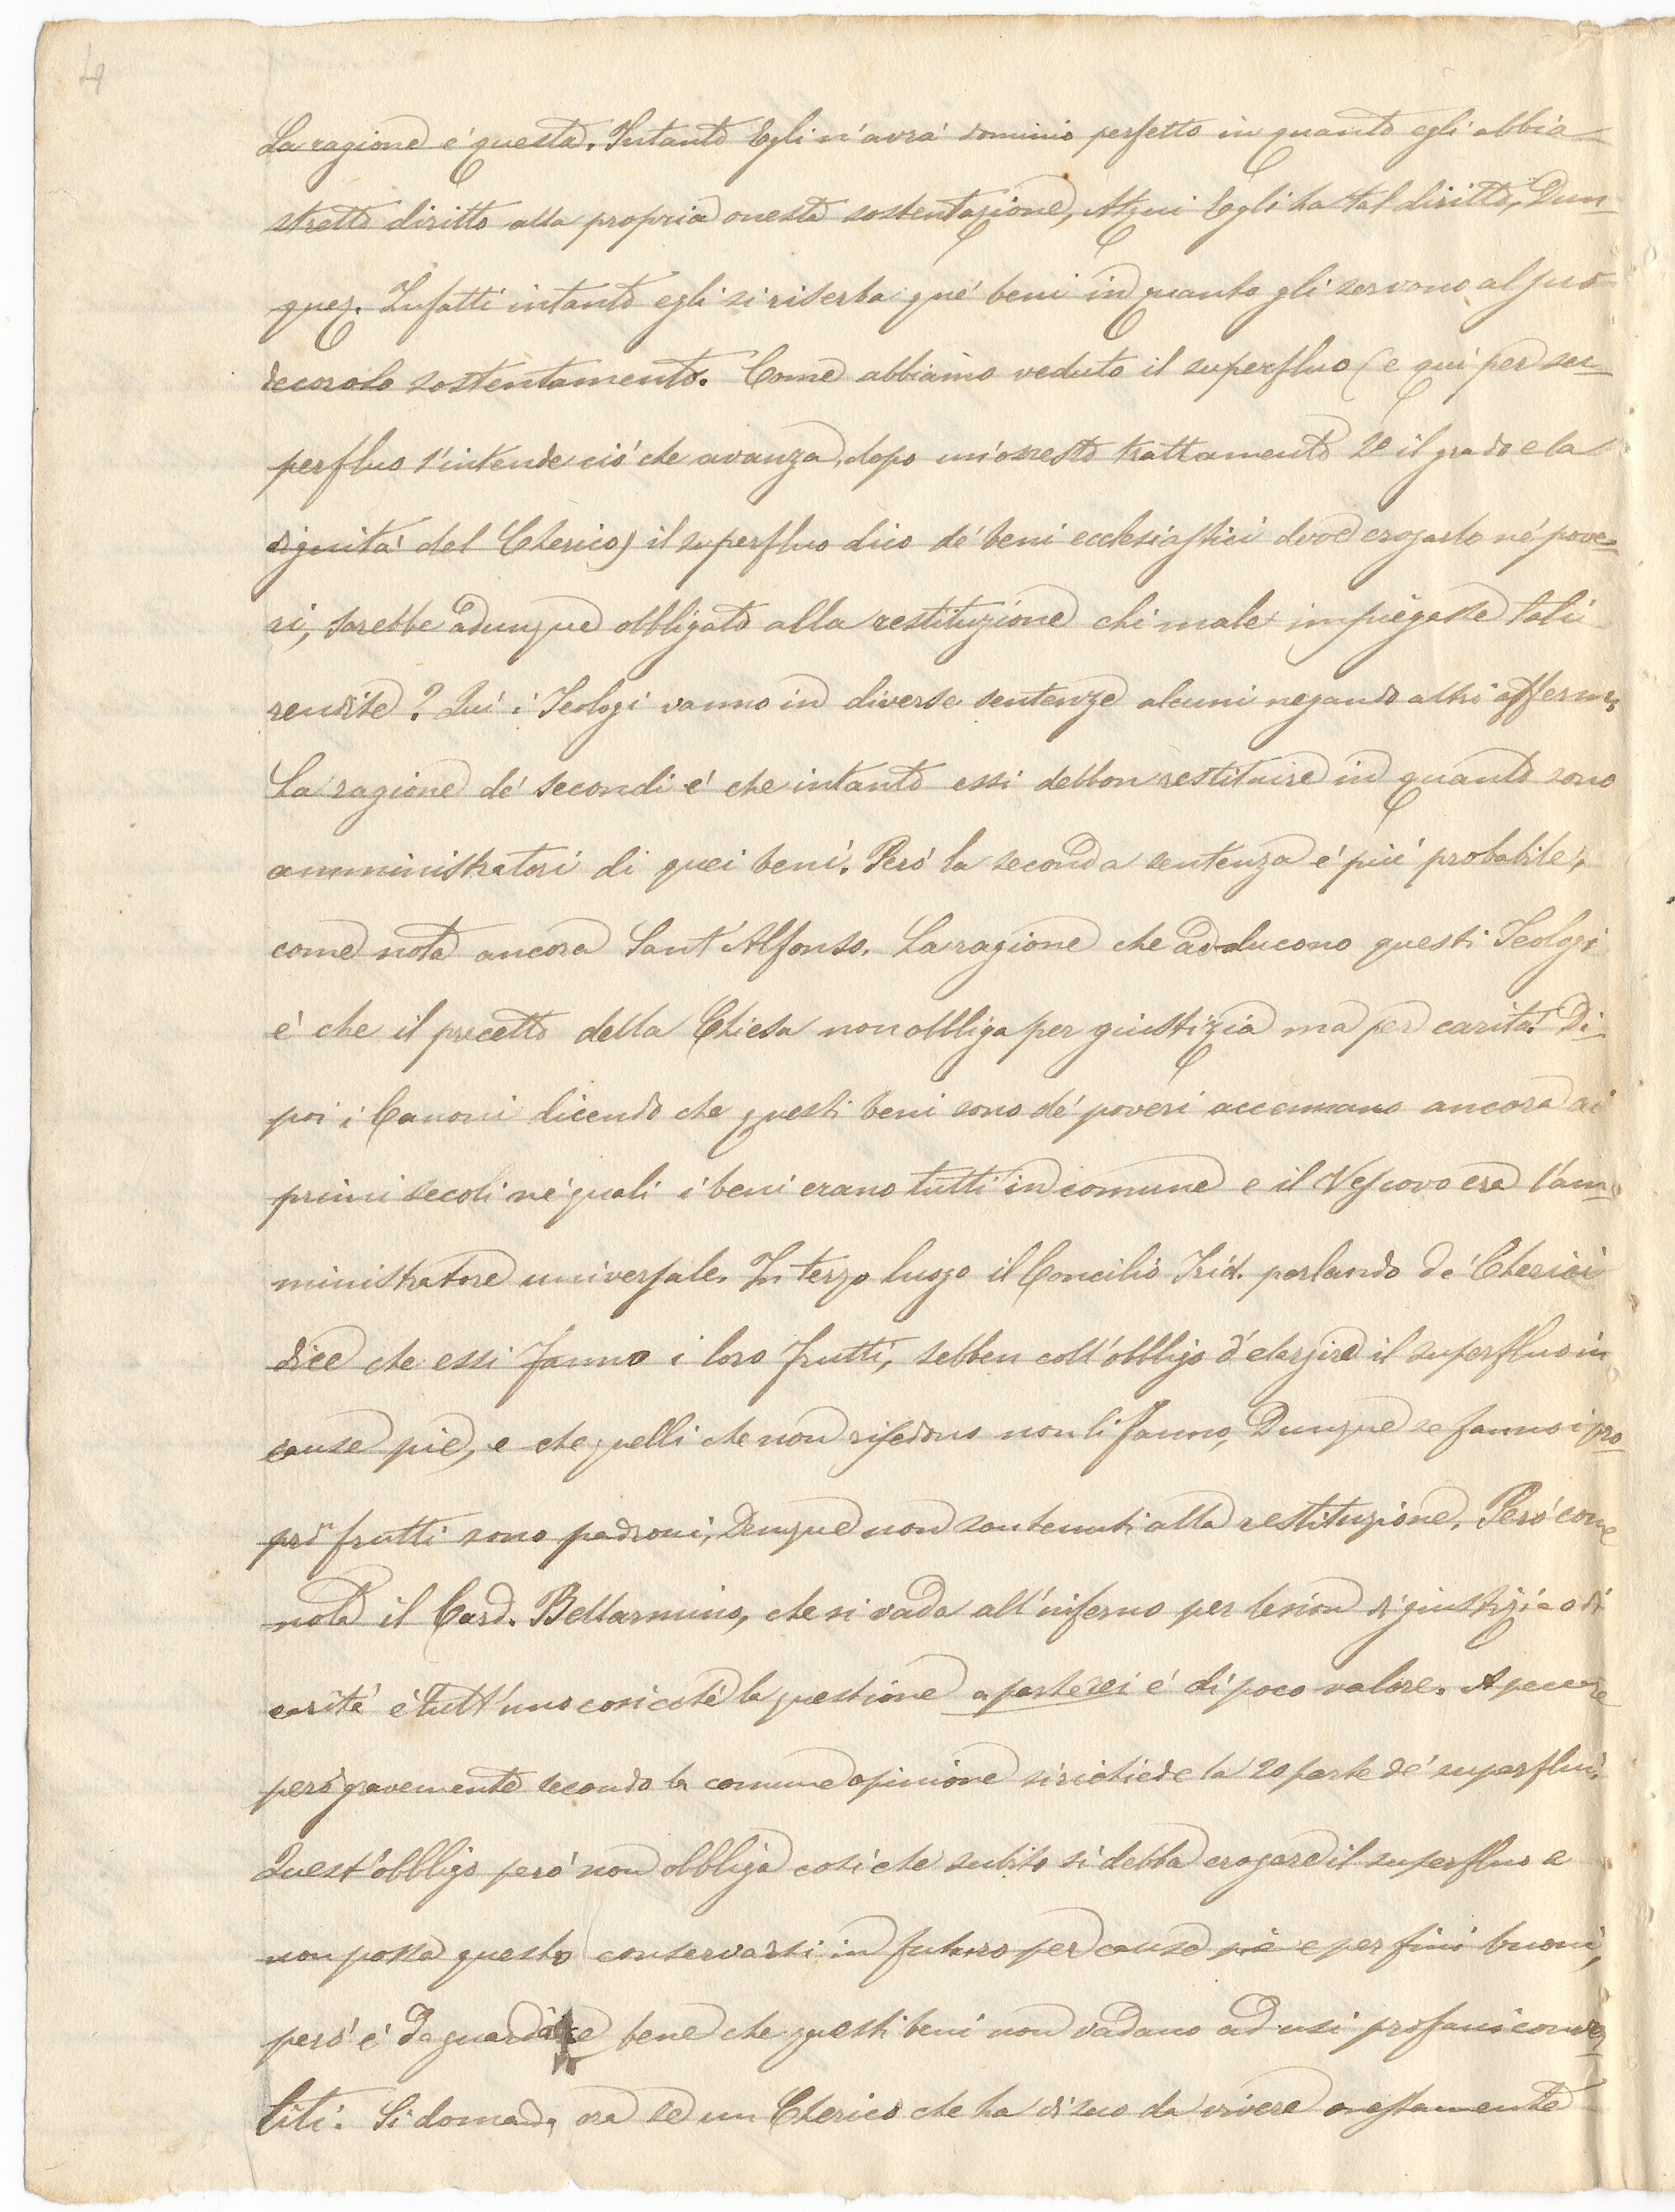 4
La ragione é questa. Intanto Egli n'avrá dominio perfetto in quanto egli abbia
stretto diritto alla propria onesta sostentazione, Atqui Egli ha tal diritto, Dun-
que. Infatti intanto egli si riserba qué beni in quanto gli servono al suo
decoroso sostentamento. Come abbiamo veduto il superfluo (e qui per su-
perfluo s'intende ció che avanza, dopo un'onesto trattamento 2º il grado e la
dignitá del Cherico) il superfluo dico dé beni ecclesiastici deve erogarlo né pove-
ri, sarebbe adunque obbligato alla restituzione chi male impiegasse tali
rendite? Quí i Teologi vanno in diverse sentenze alcuni negando altri afferm.
La ragione dé secondi é che intanto essi debbon restituire in quanto sono
amministratori di quei beni. Peró la seconda sentenza é piú probabile,
come nota ancora Sant'Alfonso. La ragione che adducono questi Teologi
é che il precetto della Chiesa non obbliga per giustizia ma per caritá. Di
poi i Canoni dicendo che questi beni sono dé poveri accennano ancora ai
primi secoli né quali i beni erano tutti in comune e il Vescovo era l'am-
ministratore universale. In terzo luogo il Concilio Trid. parlando dé Cherici
dice che essi fanno i loro frutti, sebben coll'obbligo d'elargire il superfluo in
cause pie, e che quelli che non risiedono non li fanno, Dunque se fanno i pro-
prî frutti sono padroni, Dunque non son tenuti alla restituzione. Peró come
nota il Card. Bellarmino, che si vada all'inferno per lesion di giustizia o di
caritá é tutt'uno cosicché la questione a parte rei é di poco valore. A peccare
peró gravemente secondo la comune opinione si richiede la 20 parte dé superflui.
Quest'obbligo peró non obbliga cosí che subito si debba erogare il superfluo e
non possa questo conservarsi in futuro per cause pie e per fini buoni,
peró é da guardare bene che questi beni non vadano ad usi profani conver-
titi. Si domanda ora se un Cherico che ha di suo da vivere onestamente